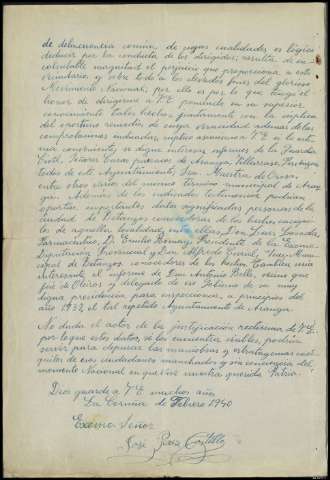 de delincuencia comun, de cuyas cualidades es lógico
deducir por la conducta de los dirigidos, resulta de in-
calculable magnitud el perjuicio que proporciona a este
vecindario y sobre todo a los elevados fines del glorioso
Movimiento Nacional; por ello es por lo que tengo el
honor de dirigirme a V.E. poniendo en su superior
conocimiento tales hechos juntamente con la súplica
del oportuno remedio de cuya gravedad ademas de las
comprobaciones indicadas, suplico asimismo a V.E. si lo esti-
ma conveniente, se digne interesar informes de la Guardia
Civil, Señores Curas párrocos de Aranga, Villarraso,
todos de este Ayuntamiento, Sra. Maestra de
entre otros varios del mismo termino municipal de Aran-
ga. Ademas de los indicados testimonios podrian
aportar importantes datos significadas personas de la
ciudad de Betanzos conocedoras de los hechos
de aquella localidad, entre ellas, Don Javier
Farmacéutico, D. Emilio Presidente de la Excma
Diputación Provincial y Don Alfredo Juez Muni-
cipal de Betanzos, conocedores de los hechos. También seria
interesante el informe de Don Antonio Bello, vecino que
fue de Oleiros y delegado de ese Gobierno de su muy
digna presidencia para inspeccionar, a principios del
año 1937, el tal repetido Ayuntamiento de Aranga.
No duda el actor de la justificación rectisima de V.E.
por lo que estos datos, si los encuentra viables, podrian
servir para desenmascarar las maniobras y estratagemas
de esos ciudadanos emboscados y sin conciencia del
momento Nacional en que vive nuestra querida Patria.
Dios guarde a V.E. muchos años
La Coruña de Febrero 1940
Excmo Señor
José Castillo